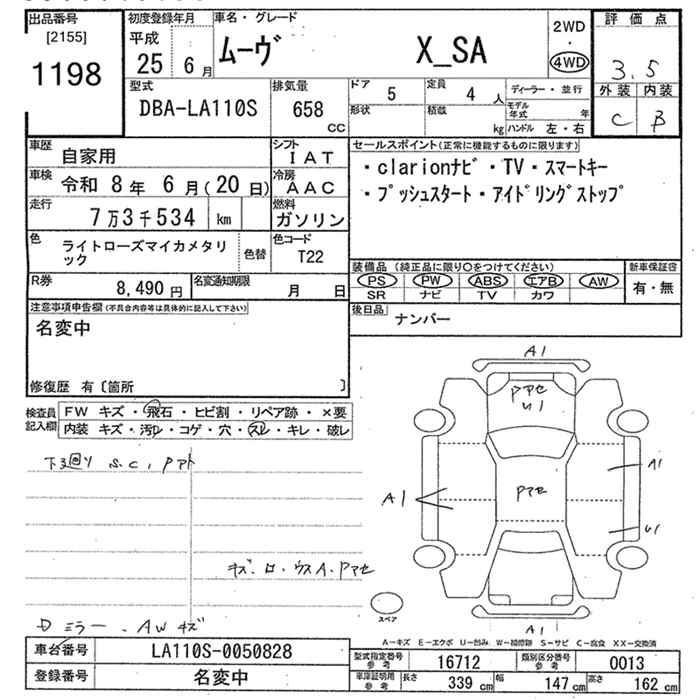 出品番号
[2155]
1198
初度登録年月
平成
25 6月
車名・グレード
ムーヴ X_SA
2WD
・
4WD
評価点
3.5
外装 内装
C B
型式
DBA-LA110S
排気量
658
CC
ドア 5
定員 4 人
形状
積載 kg
ディーラー・並行
モデル年式 年
ハンドル 左・右
車歴
自家用
シフト
IAT
車検 令和 8年 6月(20日)
冷房
AAC
走行
7万3千534 km
燃料
ガソリン
色
ライトローズマイカメタリック
色替
色コード
T22
セールスポイント(正常に機能するものに限ります)
・clarionナビ・TV・スマートキー
・プッシュスタート・アイドリングストップ
R券
8,490 円
名変通知期限
月 日
装備品 (純正品に限り○をつけてください)
PS PW ABS エアB AW
SR ナビ TV カワ
新車保証書
有・無
後日品 ナンバー
注意事項申告欄(不具合内容等は具体的に記入して下さい)
名変中
修復歴 有〔箇所 〕
検査員記入欄
FW キズ・飛石・ヒビ割・リペア跡・×要
内装 キズ・汚レ・コゲ・穴・スレ・キレ・破レ
下廻り S.C, Pアト
キズ.ロ.ウスA.Pアセ
Dミラー.AWキズ
A1
Pアセ
U1
A1
Pアセ
A1
U1
A1
スペア
A-キズ E-エクボ U-凹み W-補修跡 S-サビ C-腐食 XX-交換済
車台番号 LA110S-0050828
登録番号 名変中
型式指定番号 参考 16712
類別区分番号 参考 0013
車庫証明用 参考 長さ 339 cm 幅 147 cm 高さ 162 cm